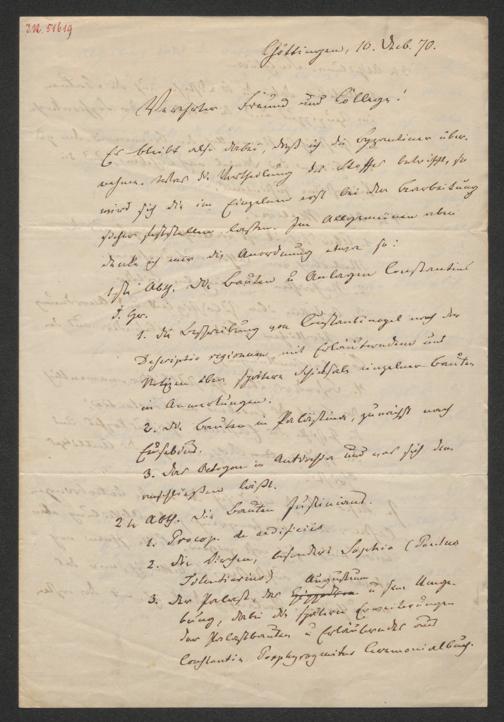 I.N. 51619
Göttingen, 10. Deb. 70.
Verehrter Freund und College!
Es bleibt also dabei, daß ich die Byzantiner über-
nehme. Was die Vertheilung des Stoffes betrifft, so
wird sich die im Einzelnen erst bei der Bearbeitung
sicher feststellen lassen. Im Allgemeinen aber
denke ich mir die Anordnung etwa so:
1ste Abth. Die Bauten u Anlagen Constantins
d. Gr.
1. die Beschreibung von Constantinopel nach der
Descriptio regionum mit Erläuterndem und
Notizen über spätere Schicksale einzelner Bauten
in Anmerkungen.
2. die Bauten in Palästina, zunächst nach
Eusebius.
3. das Octogon in Antiochia und was sich dem
anschließen läßt.
2te Abth. Die Bauten Justinians.
1. Procop. de aedificiis
2. die Kirchen, besonders Sophia (Paulus
Silentiarius)
3. Der Palast, das Augusteum u sein Umge-
bung, dabei die späteren Erweiterungen
der Palastbauten u Erläuterndes aus
Constantin Porphyrogenitus Ceremonialbuch.